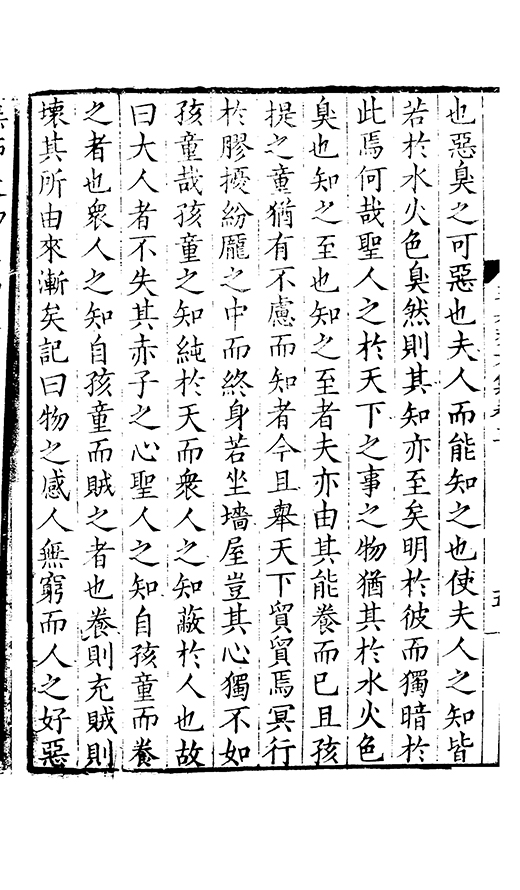 也惡臭之可惡也夫人而能知之也使夫人之知皆
若於水火色臭然則其知亦至矣明於彼而獨暗於
此焉何哉聖人之於天下之事之物猶其於水火色
臭也知之至也知之至者夫亦由其能養而已且孩
提之童猶有不慮而知者今且舉天下貿貿焉冥行
於膠擾紛厖之中而終身若坐墻屋豈其心獨不如
孩童哉孩童之知純於天而衆人之知蔽於人也故
曰大人者不失其赤子之心聖人之知自孩童而養
之者也衆人之知自孩童而賊之者也養則充賊則
壞其所由來漸矣記曰物之感人無窮而人之好惡